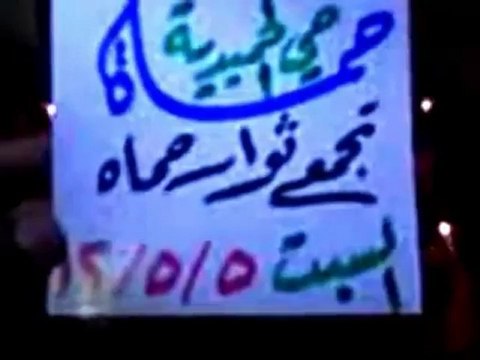 حماة
حي الحميدية
تجمع ثوار حماه
السبت ٥/٥/١٢